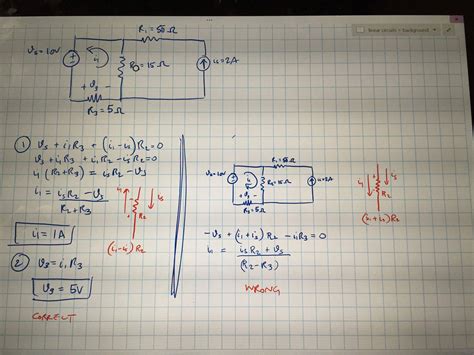 linear circuits > background
R₁=55Ω
Vs=10V
i₁
R₂=15Ω
is=2A
+ V₃ -
R₃=5Ω
① Vs + i₁R₃ + (i₁-is)R₂=0
Vs + i₁R₃ + i₁R₂ - isR₂=0
i₁(R₂+R₃) = isR₂ - Vs
i₁ = (isR₂ - Vs)/(R₂+R₃)
i₁ is R₂
(i₁-is)R₂
i₁ = 1A
② V₃ = i₁R₃
V₃ = 5V
CORRECT
R₁=55Ω
Vs=10V
i₁
R₂=15Ω
is=2A
+ V₃ -
R₃=5Ω
i₁ is R₂
(i₁+is)R₂
-Vs + (i₁+is)R₂ - i₁R₃ = 0
i₁ = (isR₂ + Vs)/(R₂-R₃)
WRONG